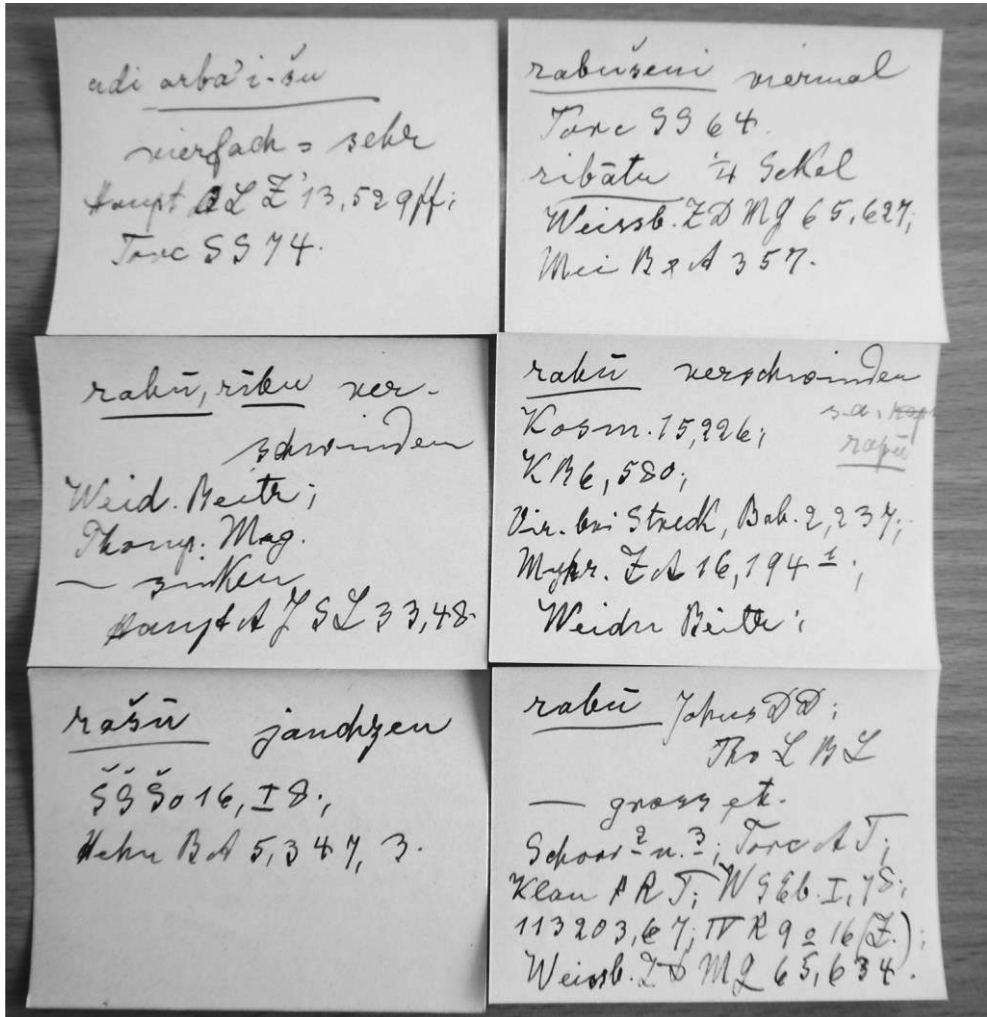 adi arba'i-šu
vierfach = sehr
Haupt OLZ '13, 529ff;
Torc SS 74.
rabušeni viermal
Torc SS 64.
ribātu ¼ Sekel
Weissb. ZDMG 65, 627;
Mei B&A 357.
rabū, rību ver-
schwinden
Weid. Beitr;
Thomp. Mag.
— sinken
Haupt AJSL 33, 48.
rabū verschwinden
Kosm. 15, 226; s.a.
KB 6, 580; rapū
Vir. bei Streck, Bab. 2, 237;
Myhr. ZA 16, 194 1;
Weidn Beitr;
rašū jauchzen
ŠŠŠo 16, I 8;
Hehn BA 5, 347, 3.
rabū DD;
Tho LBL
— gross etc.
Schorr 2 u. 3; Torc AT;
Klau PRT; WSEb. I, 78;
113203, 67; IV R 9 a 16 (Z.);
Weissb. ZDMG 65, 634.